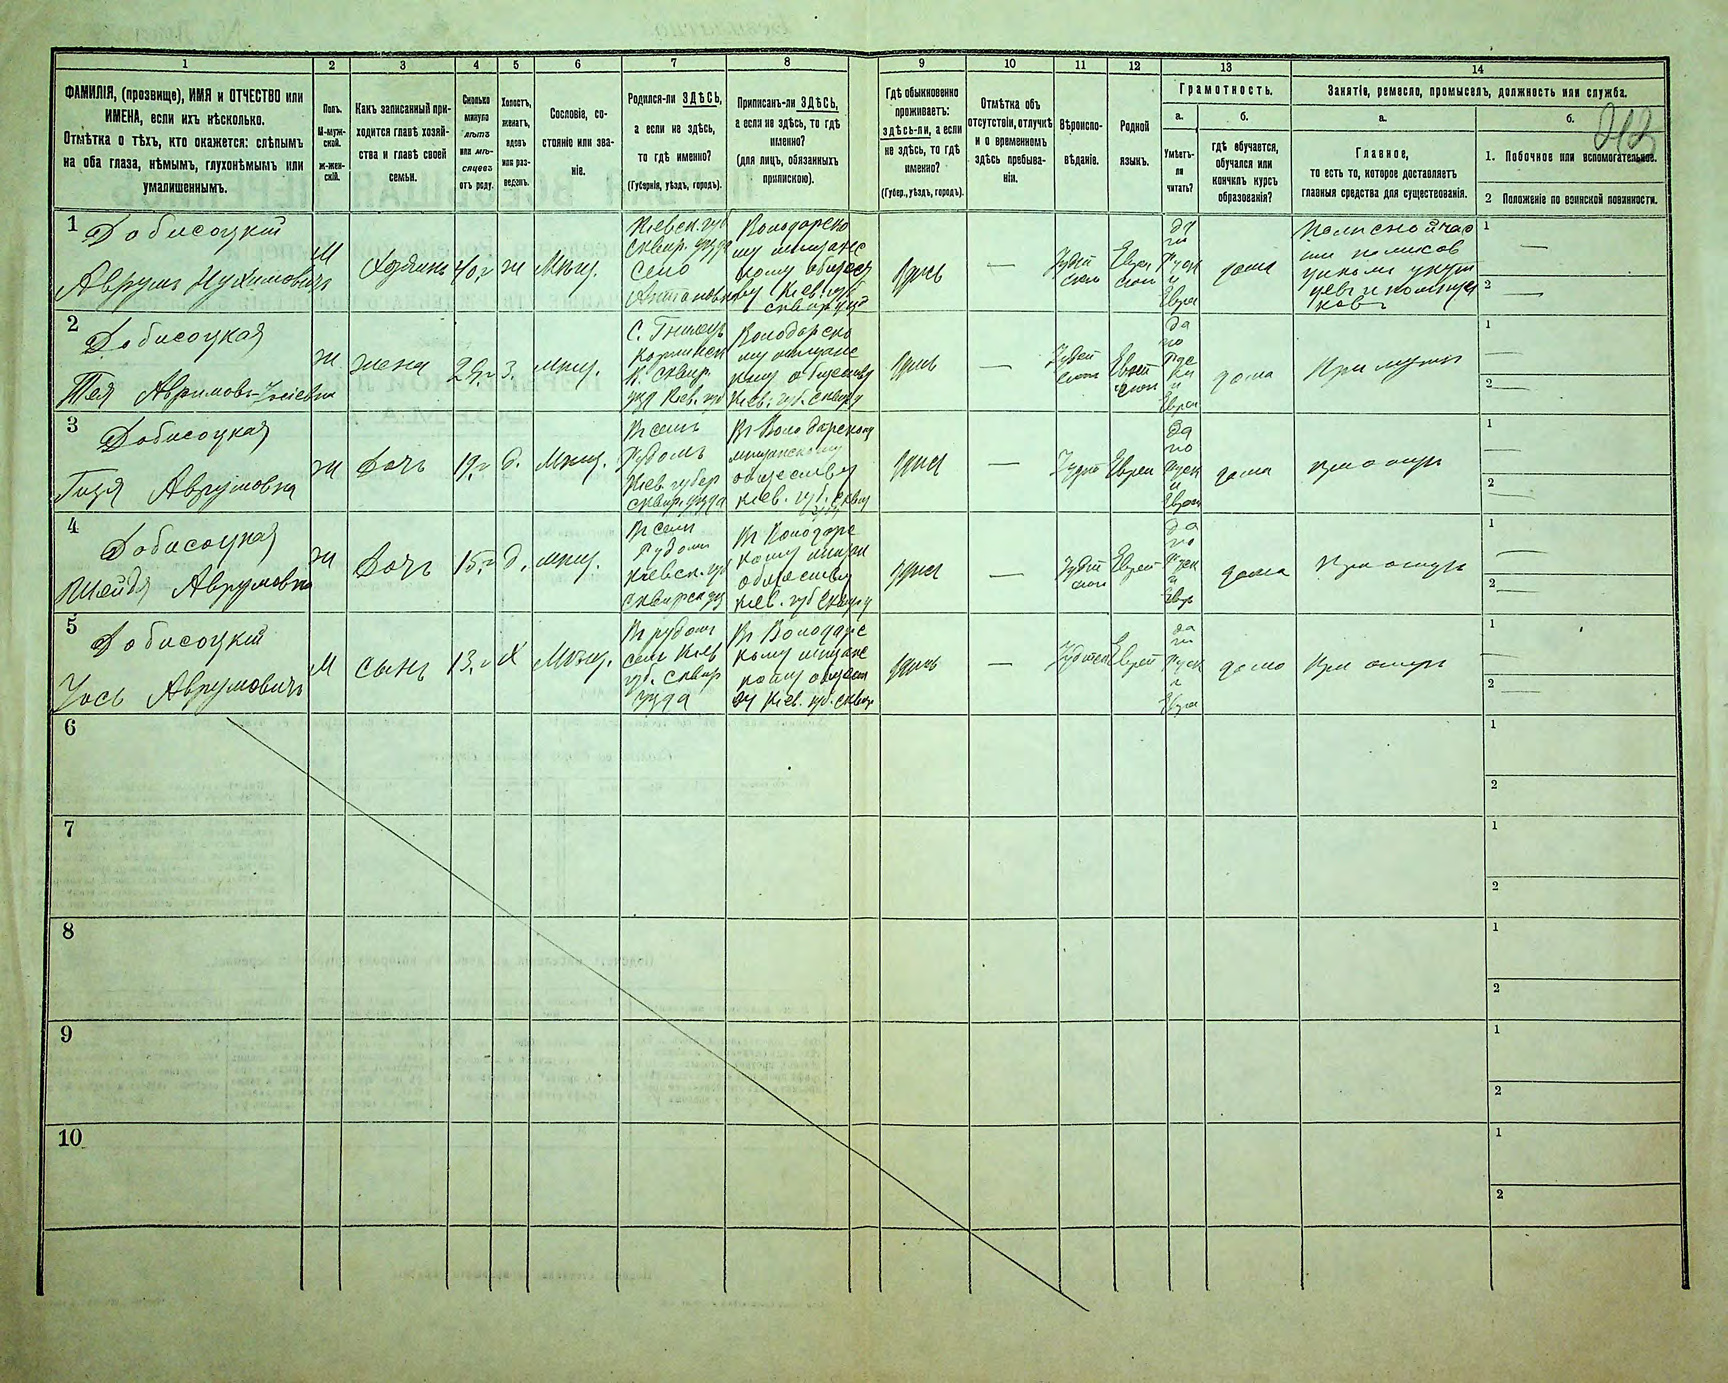 1 2 3 4 5 6 7 8 9 10 11 12 13 14
ФАМИЛІЯ, (прозвище), ИМЯ и ОТЧЕСТВО или
ИМЕНА, если ихъ нѣсколько.
Отмѣтка о тѣхъ, кто окажется: слѣпымъ
на оба глаза, нѣмымъ, глухонѣмымъ или
умалишеннымъ.
Полъ.
М-муж-
ской.
ж-жен-
скій.
Какъ записанный при-
ходится главѣ хозяй-
ства и главѣ своей
семьи.
Сколько
минуло
лѣтъ
или мѣ-
сяцевъ
отъ роду.
Холостъ,
женатъ,
вдовъ
или раз-
веденъ.
Сословіе, со-
стояніе или зва-
ніе.
Родился-ли ЗДѢСЬ,
а если не здѣсь,
то гдѣ именно?
(Губернія, уѣздъ, городъ).
Приписанъ-ли ЗДѢСЬ,
а если не здѣсь, то гдѣ
именно?
(для лицъ, обязанныхъ
припискою).
Гдѣ обыкновенно
проживаетъ:
здѣсь-ли, а если
не здѣсь, то гдѣ
именно?
(Губер., уѣздъ, городъ).
Отмѣтка объ
отсутствіи, отлучкѣ
и о временномъ
здѣсь пребыва-
ніи.
Вѣроиспо-
вѣданіе.
Родной
языкъ.
Грамотность.
а.
Умѣетъ-
ли
читать?
б.
гдѣ обучается,
обучался или
кончилъ курсъ
образованія?
Занятіе, ремесло, промыселъ, должность или служба.
а.
Главное,
то есть то, которое доставляетъ
главныя средства для существованія.
б.
1. Побочное или вспомогательное.
2 Положеніе по воинской повинности.
1 Добисоцкій
Аврумъ Нухимовичъ
М
Хозяинъ
40
ж
Мѣщ.
Кіевск. губ
Сквир. уѣзда
село
Антоновка
Володарско
му мѣщанс
кому общест
ву Кіев. губ
сквир уѣз
здѣсь
—
Іудей
ской
Еврей
ской
да
по
Руск
и
Еврей
дома
1 —
2 —
2 Добисоцкая
Ж
жена
З
мѣщ.
Володарско
му мѣщанс
кому обществу
здѣсь
—
Іудей
ской
Еврей
ской
да
по
Рус
и
Еврей
дома
При мужѣ
1 —
2 —
3 Добисоцкая
Аврумовна
ж
Дочь
19
д.
Мѣщ.
Въ селѣ
Рудомъ
Кіев. губер
сквир. уѣзда
Въ Володарскому
мѣщанскому
обществу
Кіев. губ. Сквир
здѣсь
—
Іудей
Еврей
да
по
Руск
и
Еврей
дома
при отцѣ
1 —
2 —
4 Добисоцкая
Шейдя Аврумовна
ж
Дочь
15
д.
мѣщ.
Въ селѣ
Рудомъ
Кіевск. губ
Въ Володарс
кому мѣщан
обществу
Кіев. губ Сквир у
здѣсь
—
Іудей
ской
Еврей
да
по
Руск
и
Еврей
дома
При отцѣ
1 —
2 —
5 Добисоцкій
Іось Аврумовичъ
М
сынъ
13
Х
Мѣщ.
Въ рудомъ
селѣ Кіев
губ. Сквир
уѣзда
Въ Володарс
кому мѣщанс
кому общест
ву Кіев. губ. сквир
здѣсь
—
Іудейск
Еврей
да
по
Руск
и
Евреи
дома
При отцѣ
1 —
2 —
6
1
2
7
1
2
8
1
2
9
1
2
10
1
2